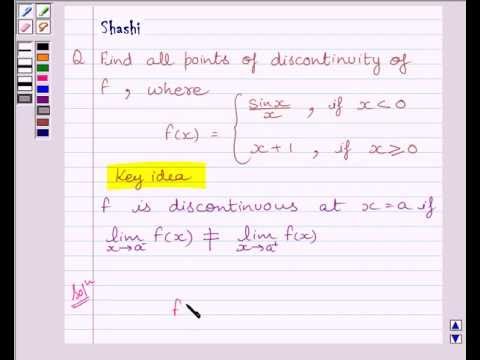 Shashi
Q Find all points of discontinuity of
f , where
f(x) = { sinx/x , if x < 0
x + 1 , if x ≥ 0
Key idea
f is discontinuous at x = a if
lim x→a⁻ f(x) ≠ lim x→a⁺ f(x)
Solⁿ
f